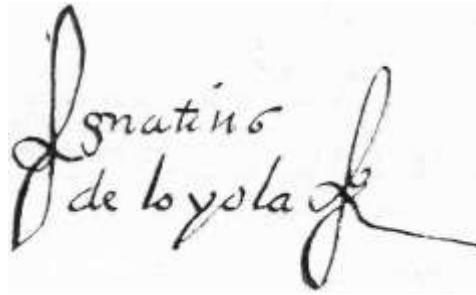 Ignatius
de loyola